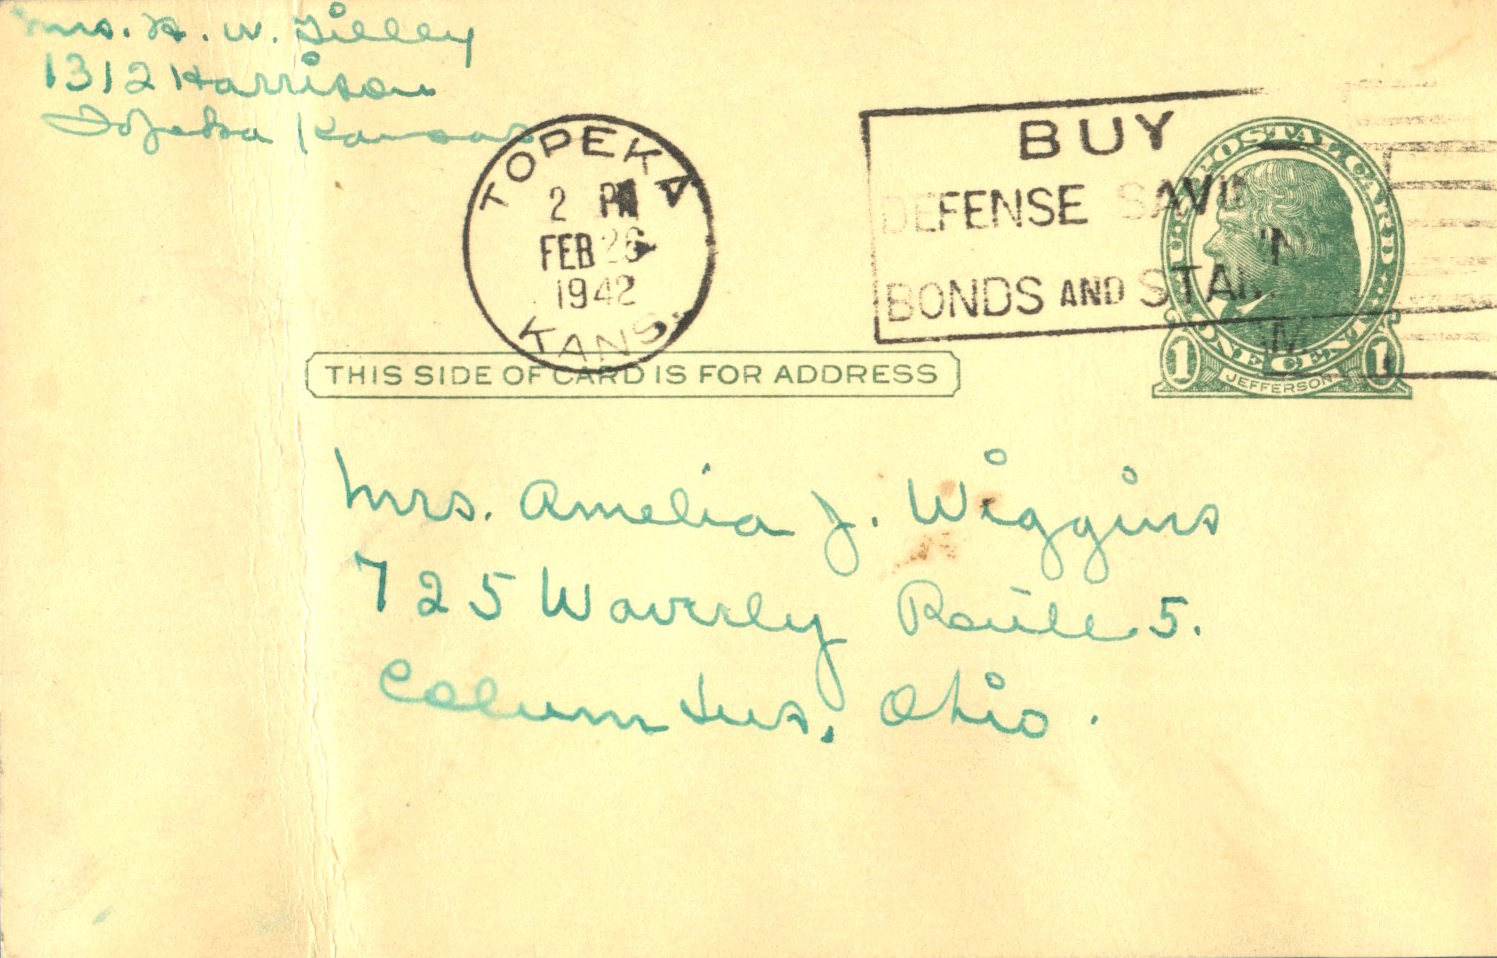 Mrs. H. W. Tilley
1312 Harrison
Topeka Kansas
TOPEKA
2 PM
FEB 26
1942
KANS.
BUY
DEFENSE SAVIN
BONDS AND STAM
U.S. POSTAL CARD
ONE CENT
1 JEFFERSON 1
THIS SIDE OF CARD IS FOR ADDRESS
Mrs. Amelia J. Wiggins
725 Waverly Route 5.
Columbus, Ohio.